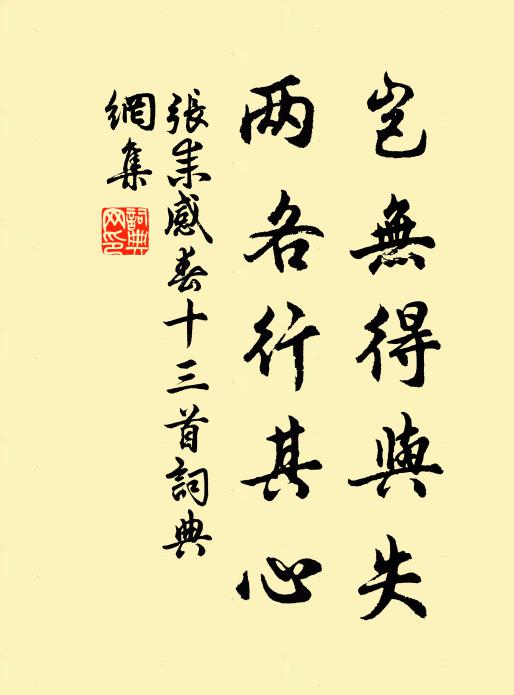 岂無得與失
两各行其心
張耒感春十三首詞典
網集
詞典
网印